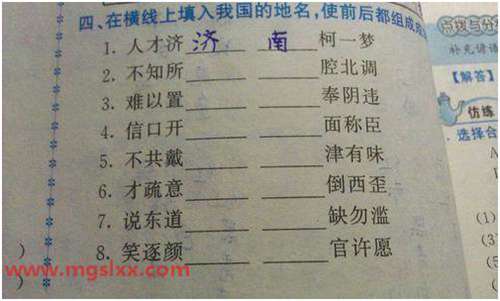 四、在横线上填入我国的地名,使前后都组成成
1. 人才济 济 南 柯一梦
2. 不知所 腔北调
3. 难以置 奉阴违
4. 信口开 面称臣
5. 不共戴 津有味
6. 才疏意 倒西歪
7. 说东道 缺勿滥
8. 笑逐颜 官许愿
点拨与分
补充谚语
【解答】
仿练
选择合
A
(1)
(3)
(5
www.mgslxx.com